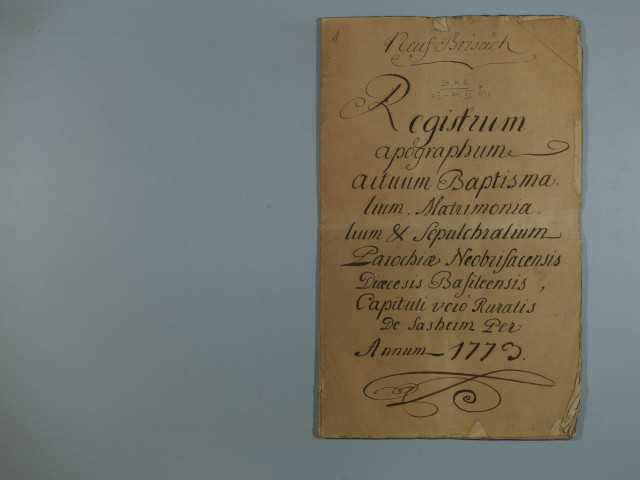 1
Neuf Brisach
Registrum
apographum
actuum Baptisma-
lium, Matrimonia-
lium & Sepulchralium
Parochiæ Neobrisacensis
Diœcesis Basileensis,
Capituli verò Ruralis
De Sasheim Per
Annum 1773.